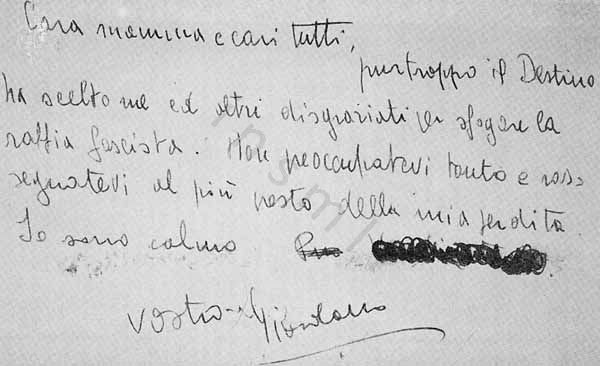 Cara mamma e cari tutti,
purtroppo il Destino
ha scelto me ed altri disgraziati per sfogare la
rabbia fascista. Non preoccupatevi tanto e rass
segnatevi al più presto della mia perdita.
Io sono calmo
vostro Giancarlo